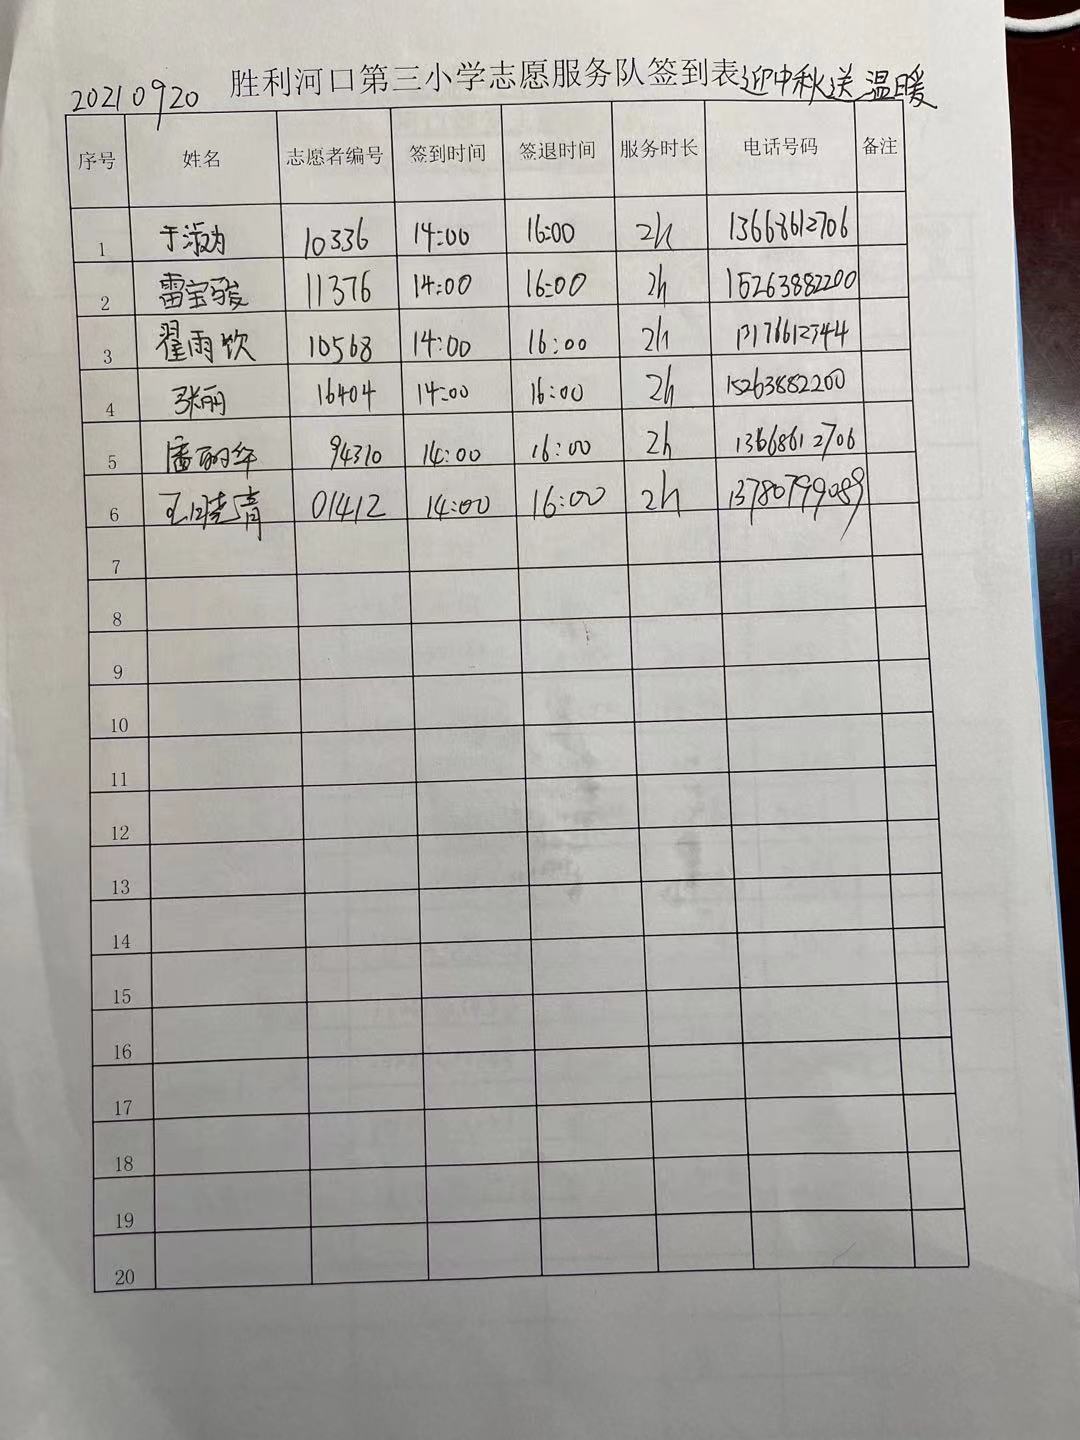 20210920 胜利河口第三小学志愿服务队签到表迎中秋送温暖
序号 姓名 志愿者编号 签到时间 签退时间 服务时长 电话号码 备注
1 于淑为 10336 14:00 16:00 2h 13668612706
2 雷宝骏 11376 14:00 16:00 2h 15263882200
3 翟雨饮 10568 14:00 16:00 2h
4 张丽 16404 14:00 16:00 2h 15263882200
5 潘丽华 94310 14:00 16:00 2h 13668612706
6 王晓青 01412 14:00 16:00 2h 13780799089
7
8
9
10
11
12
13
14
15
16
17
18
19
20